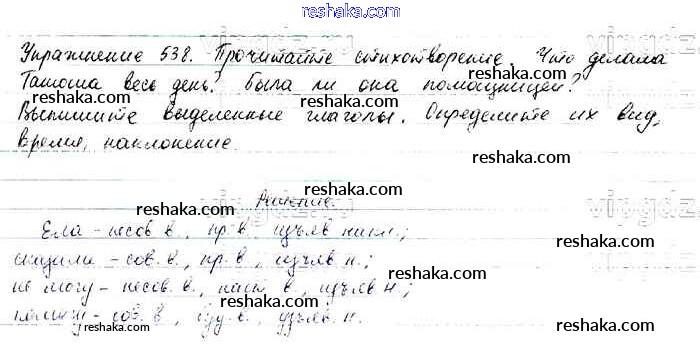 reshaka.com
Упражнение 538. Прочитайте стихотворение. Что делала
Танюша весь день? Была ли она помощницей?
Выпишите выделенные глаголы. Определите их вид,
время, наклонение.
Решение.
Ела - несов. в., пр. в., изъяв. накл.;
сказали - сов. в., пр. в., изъяв. н.;
не могу - несов. в., наст. в., изъяв. н.;
- сов. в., буд. в., изъяв. н.
reshaka.com
reshaka.com
reshaka.com
reshaka.com
reshaka.com
reshaka.com
reshaka.com
reshaka.com
reshaka.com
reshaka.com
reshaka.com